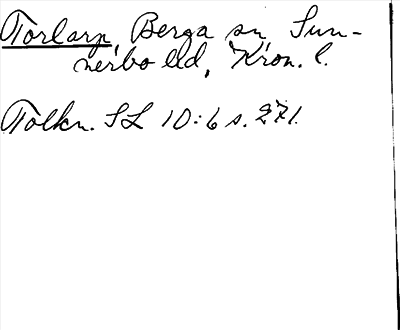 Torlarp, Berga sn Sun-
nerbo hd, Kron. l.
Tolkn. SL 10:6 s. 271.